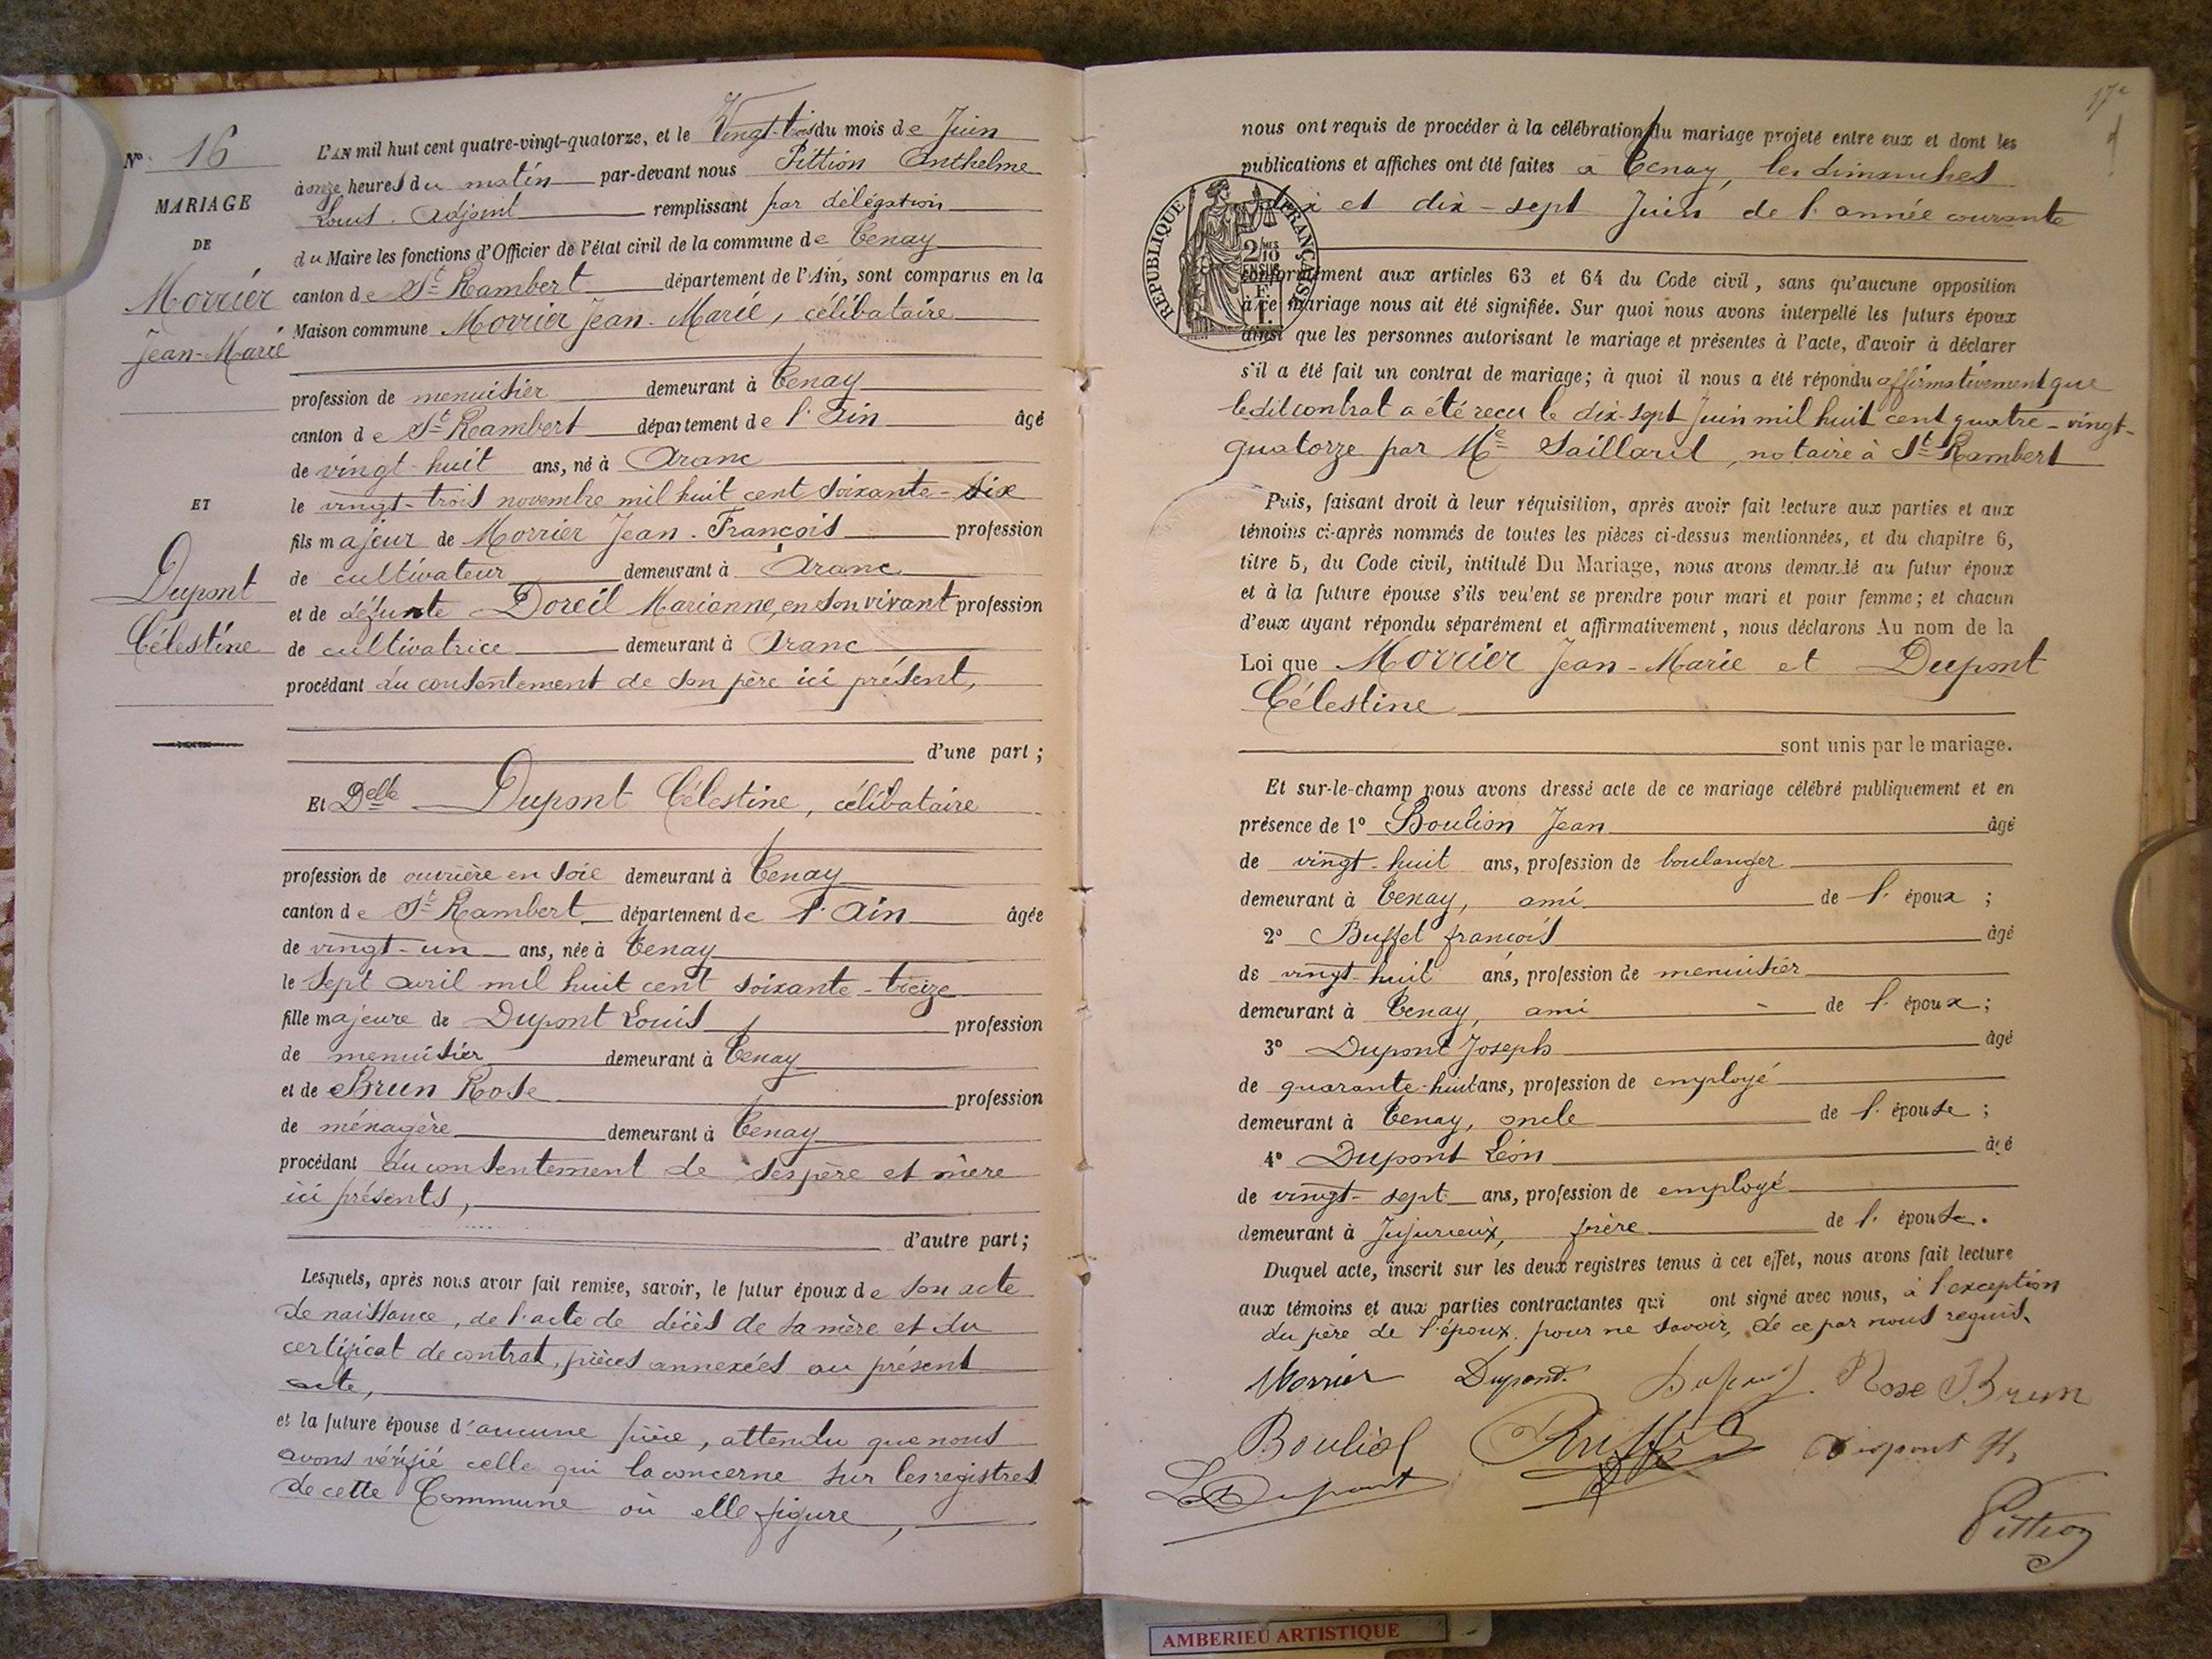 N° 16
MARIAGE
DE
Morrier
Jean-Marie
ET
Dupont
Célestine
L'AN mil huit cent quatre-vingt-quatorze, et le Vingt-trois du mois de Juin
à onze heures du matin par-devant nous Pittion Anthelme
Louis. Adjoint remplissant par délégation
du Maire les fonctions d'Officier de l'état civil de la commune de Tenay
canton de St Rambert département de l'Ain, sont comparus en la
Maison commune Morrier Jean-Marie, célibataire
profession de menuisier demeurant à Tenay
canton de St Rambert département de l'Ain âgé
de vingt-huit ans, né à Aranc
le vingt-trois novembre mil huit cent soixante-six
fils majeur de Morrier Jean-François profession
de cultivateur demeurant à Aranc
et de défunte Doreil Marianne, en son vivant profession
de cultivatrice demeurant à Aranc
procédant du consentement de son père ici présent,
d'une part ;
Et Delle Dupont Célestine, célibataire
profession de ouvrière en soie demeurant à Tenay
canton de St Rambert département de l'Ain âgée
de vingt-un ans, née à Tenay
le sept avril mil huit cent soixante-treize
fille majeure de Dupont Louis profession
de menuisier demeurant à Tenay
et de Brun Rose profession
de ménagère demeurant à Tenay
procédant du consentement de ses père et mère
ici présents,
d'autre part ;
Lesquels, après nous avoir fait remise, savoir, le futur époux de son acte
de naissance, de l'acte de décès de sa mère et du
certificat de contrat, pièces annexées au présent
acte,
et la future épouse d'aucune pièce, attendu que nous
avons vérifié celle qui la concerne sur les registres
de cette Commune où elle figure,
17e
nous ont requis de procéder à la célébration du mariage projeté entre eux et dont les
publications et affiches ont été faites à Tenay, les dimanches
dix et dix-sept Juin de l'année courante
RÉPUBLIQUE FRANÇAISE
2/10MES
EN SUS
conformément aux articles 63 et 64 du Code civil, sans qu'aucune opposition
à ce mariage nous ait été signifiée. Sur quoi nous avons interpellé les futurs époux
ainsi que les personnes autorisant le mariage et présentes à l'acte, d'avoir à déclarer
s'il a été fait un contrat de mariage; à quoi il nous a été répondu affirmativement que
ledit contrat a été reçu le dix-sept Juin mil huit cent quatre-vingt-
quatorze par Me Saillard, notaire à St Rambert
Puis, faisant droit à leur réquisition, après avoir fait lecture aux parties et aux
témoins ci-après nommés de toutes les pièces ci-dessus mentionnées, et du chapitre 6,
titre 5, du Code civil, intitulé Du Mariage, nous avons demandé au futur époux
et à la future épouse s'ils veulent se prendre pour mari et pour femme; et chacun
d'eux ayant répondu séparément et affirmativement, nous déclarons Au nom de la
Loi que Morrier Jean-Marie et Dupont
Célestine
sont unis par le mariage.
Et sur-le-champ nous avons dressé acte de ce mariage célébré publiquement et en
présence de 1° Boulion Jean âgé
de vingt-huit ans, profession de boulanger
demeurant à Tenay, ami de l'époux ;
2° Buffet françois âgé
de vingt-huit ans, profession de menuisier
demeurant à Tenay, ami de l'époux ;
3° Dupont Joseph âgé
de quarante-huit ans, profession de employé
demeurant à Tenay, oncle de l'épouse ;
4° Dupont Léon âgé
de vingt-sept ans, profession de employé
demeurant à Jujurieux, frère de l'épouse.
Duquel acte, inscrit sur les deux registres tenus à cet effet, nous avons fait lecture
aux témoins et aux parties contractantes qui ont signé avec nous, à l'exception
du père de l'époux pour ne savoir, de ce par nous requis.
Morrier Dupont Dupont Rose Brun
Bouliol Dupont
L Dupont
Pittion
AMBERIEU ARTISTIQUE